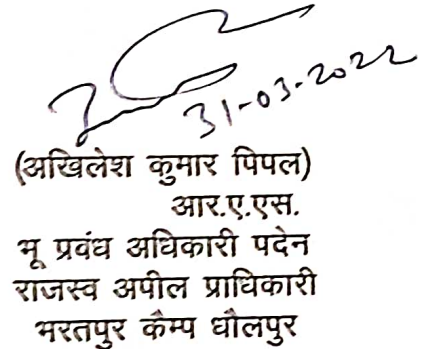 31-03-2022
(अखिलेश कुमार पिपल)
आर.ए.एस.
भू प्रवंध अधिकारी पदेन
राजस्व अपील प्राधिकारी
भरतपुर कैम्प धौलपुर